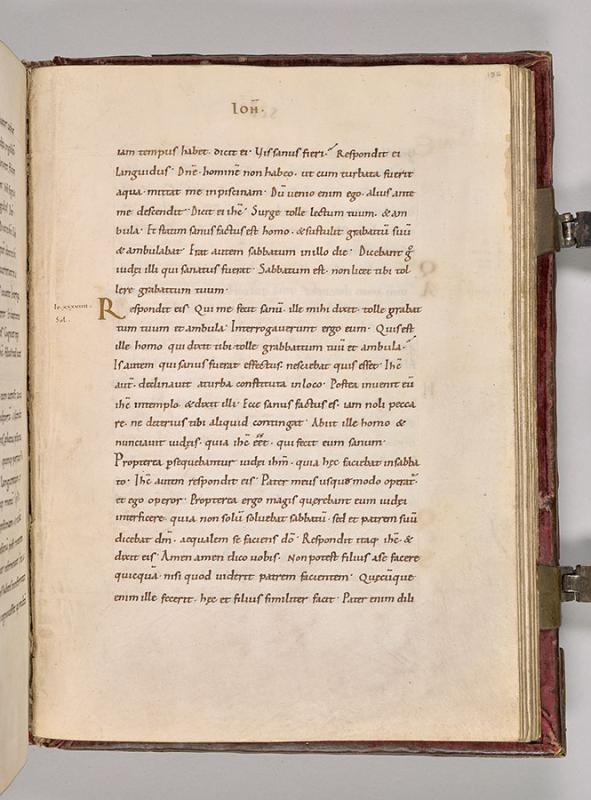 136
Ioh̄·
iam tempus habet· dicit ei· Vis sanus fieri· Respondit ei
languidus· Dn̄e· hominē non habeo· ut cum turbata fuerit
aqua· mittat me in piscinam· Dū uenio enim ego· alius ante
me descendit· Dicit ei ihc̄· Surge tolle lectum tuum· & am
bula· Et statim sanus factus est homo· & sustulit grabatū suū
& ambulabat· Erat autem sabbatum in illo die· Dicebant g̊
iudęi illi qui sanatus fuerat· Sabbatum est· non licet tibi tol
lere grabattum tuum·
Respondit eis· Qui me fecit sanū· ille mihi dixit· tolle grabat
tum tuum et ambula· Interrogauerunt ergo eum· Quis est
ille homo qui dixit tibi· tolle grabbattum tuū et ambula·
Is autem qui sanus fuerat effectus· nesciebat quis esset· Ihc̄
aut̄· declinauit aturba constituta in loco· Postea inuenit eū
ihc̄ intemplo· & dixit illi· Ecce sanus factus es· iam noli pecca
re· ne deterius tibi aliquid contingat· Abiit ille homo &
nunciauit iudęis· quia ihc̄ eēt· qui fecit eum sanum·
Propterea psequebantur iudęi ihm̄· quia hęc faciebat insabba
to· Ihc̄ autem respondit eis· Pater meus usquemodo operat̄
et ego operor· Propterea ergo magis quęrebant eum iudęi
interficere· quia non solū soluebat sabbatū· sed et patrem suū
dicebat dm̄· aequalem se faciens dō· Respondit itaq; ihc̄· &
dixit eis· Amen amen dico uobis· Non potest filius ase facere
quicquā· nisi quod uiderit patrem facientem· Quęcūque
enim ille fecerit· hęc et filius similiter facit· Pater enim dili